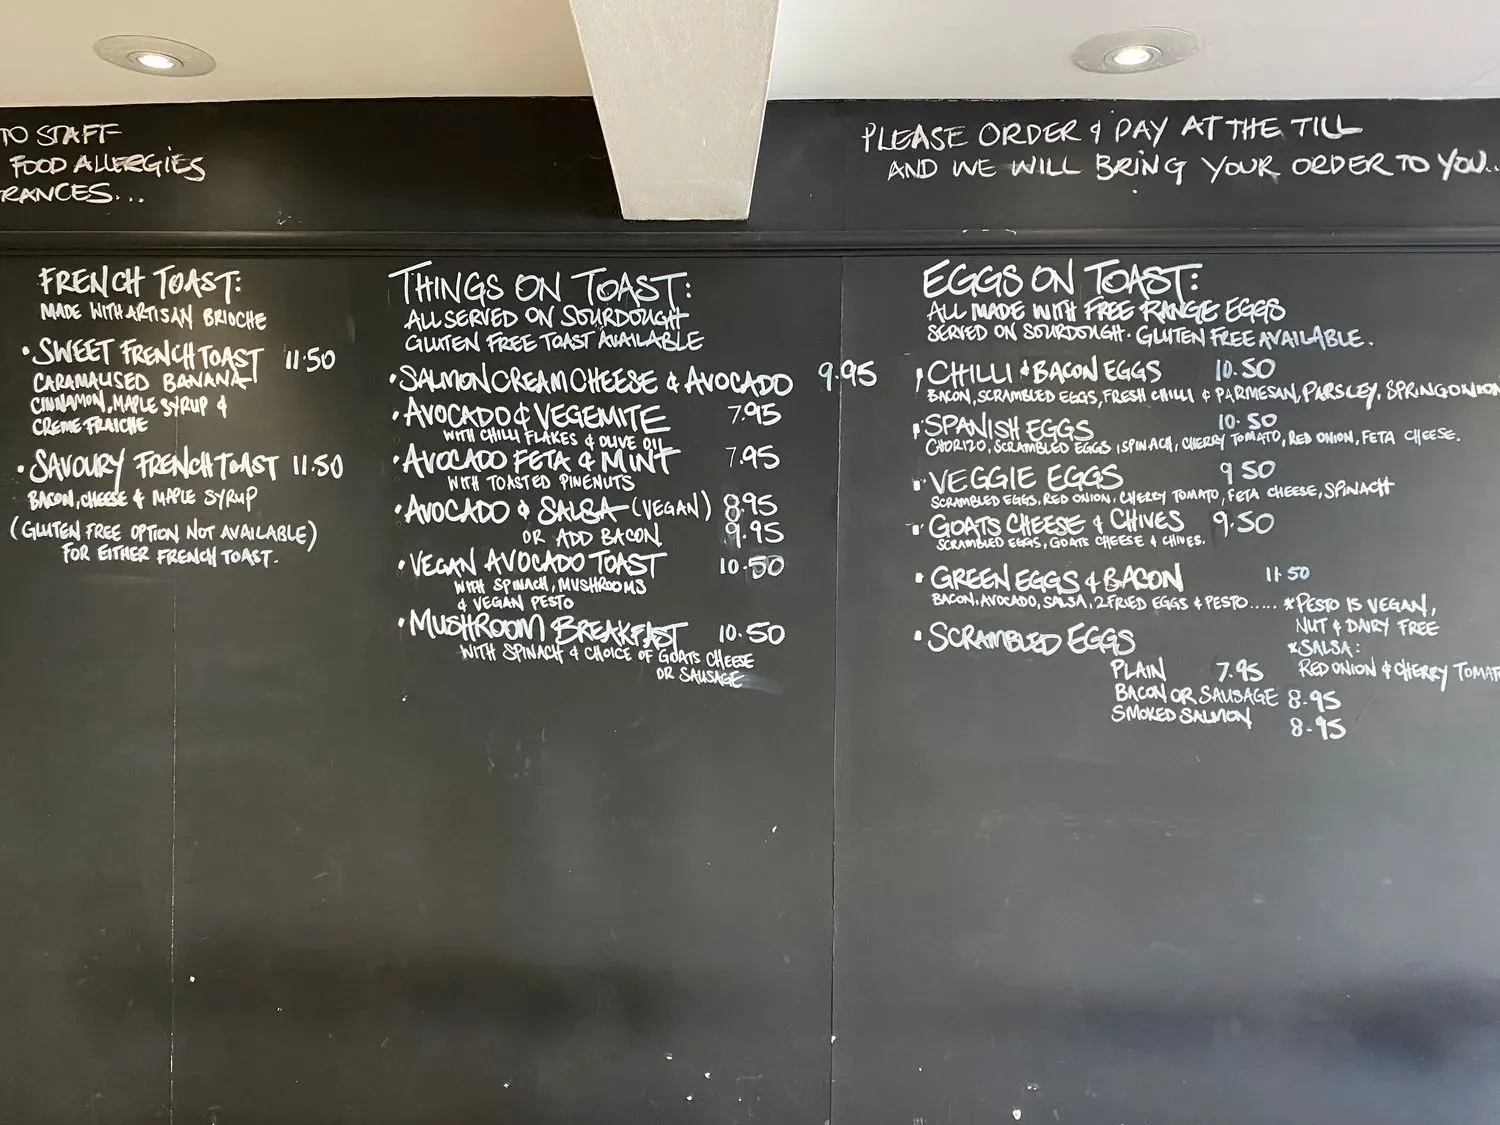 TO STAFF
FOOD ALLERGIES
RANCES...
PLEASE ORDER & PAY AT THE TILL
AND WE WILL BRING YOUR ORDER TO YOU...
FRENCH TOAST:
MADE WITH ARTISAN BRIOCHE
• SWEET FRENCH TOAST 11.50
CARAMALISED BANANA
CINNAMON, MAPLE SYRUP &
CREME FRAICHE
• SAVOURY FRENCH TOAST 11.50
BACON, CHEESE & MAPLE SYRUP
(GLUTEN FREE OPTION NOT AVAILABLE)
FOR EITHER FRENCH TOAST.
THINGS ON TOAST:
ALL SERVED ON SOURDOUGH
GLUTEN FREE TOAST AVAILABLE
• SALMON CREAM CHEESE & AVOCADO 9.95
• AVOCADO & VEGEMITE 7.95
WITH CHILLI FLAKES & OLIVE OIL
• AVOCADO FETA & MINT 7.95
WITH TOASTED PINENUTS
• AVOCADO & SALSA (VEGAN) 8.95
OR ADD BACON 9.95
• VEGAN AVOCADO TOAST 10.50
WITH SPINACH, MUSHROOMS
& VEGAN PESTO
• MUSHROOM BREAKFAST 10.50
WITH SPINACH & CHOICE OF GOATS CHEESE
OR SAUSAGE
EGGS ON TOAST:
ALL MADE WITH FREE RANGE EGGS
SERVED ON SOURDOUGH. GLUTEN FREE AVAILABLE.
• CHILLI & BACON EGGS 10.50
BACON, SCRAMBLED EGGS, FRESH CHILLI & PARMESAN, PARSLEY, SPRING ONION
• SPANISH EGGS 10.50
CHORIZO, SCRAMBLED EGGS, SPINACH, CHERRY TOMATO, RED ONION, FETA CHEESE.
• VEGGIE EGGS 9 50
SCRAMBLED EGGS, RED ONION, CHERRY TOMATO, FETA CHEESE, SPINACH
• GOATS CHEESE & CHIVES 9.50
SCRAMBLED EGGS, GOATS CHEESE & CHIVES.
• GREEN EGGS & BACON 11.50
BACON, AVOCADO, SALSA, 2 FRIED EGGS & PESTO..... *PESTO IS VEGAN,
NUT & DAIRY FREE
• SCRAMBLED EGGS
*SALSA:
RED ONION & CHERRY TOMAT
PLAIN 7.95
BACON OR SAUSAGE 8.95
SMOKED SALMON 8.95